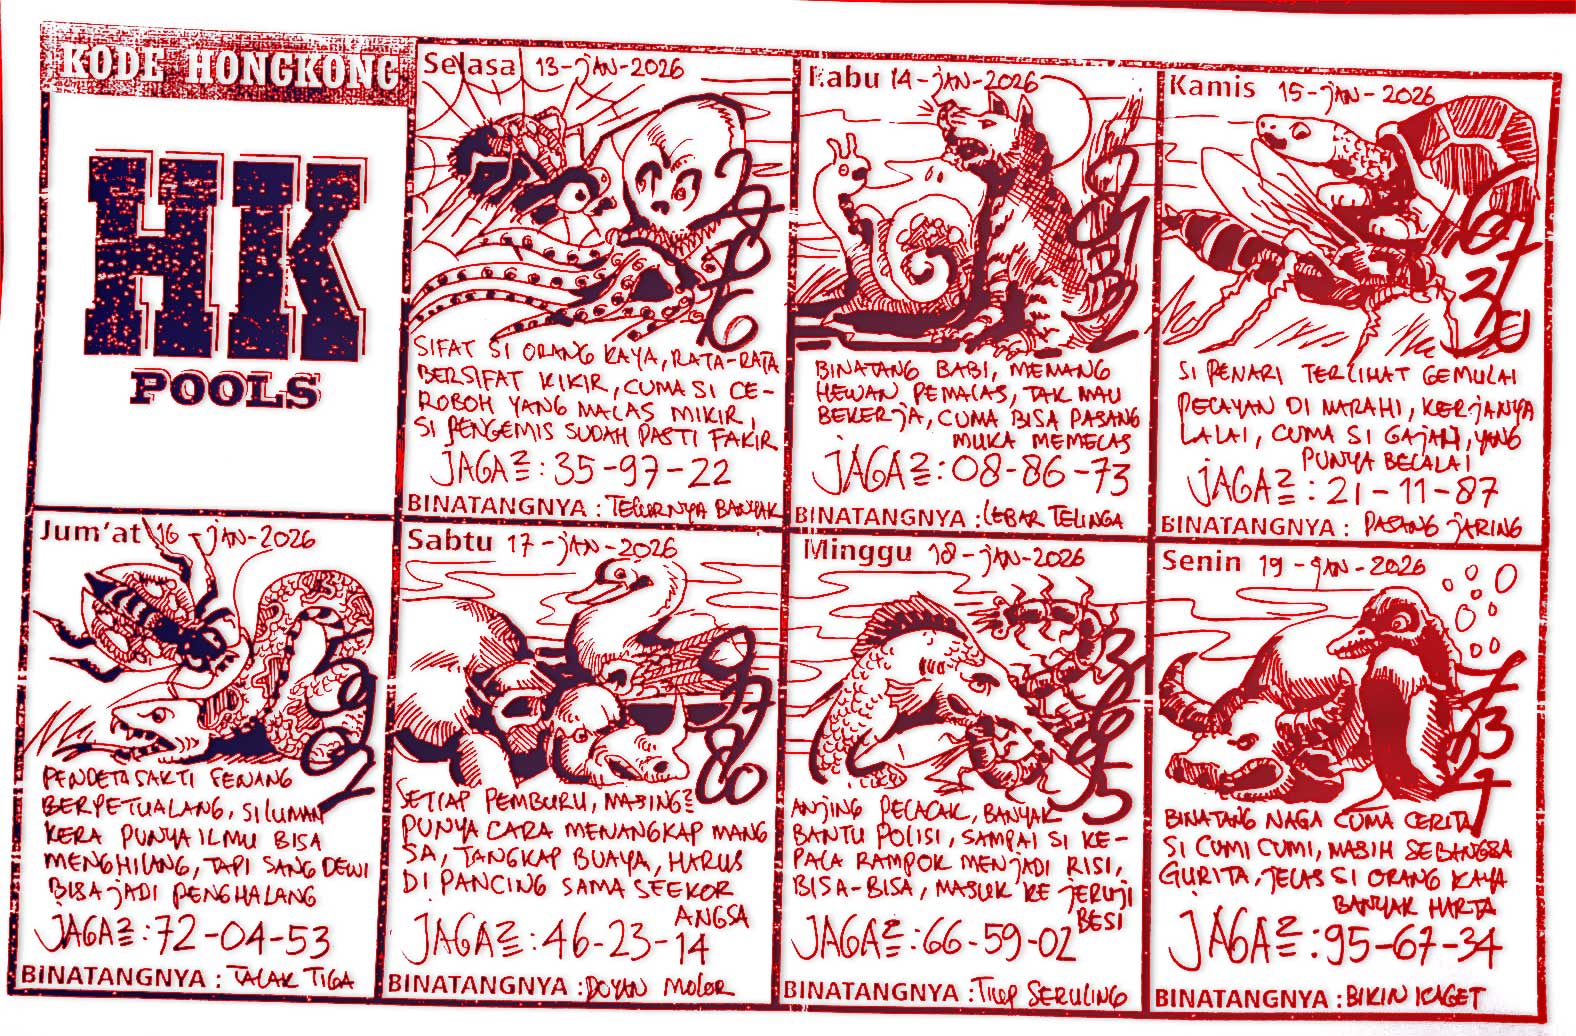 KODE HONGKONG
HK
POOLS
Selasa 13-jAN-2026
SIFAT SI ORANG KAYA, RATA-RATA
BERSIFAT KIKIR, CUMA SI CE-
ROBOH YANG MALAS MIKIR,
SI PENGEMIS SUDAH PASTI FAKIR
JAGA2 : 35-97-22
BINATANGNYA : TELURNYA BANYAK
Rabu 14-jAN-2026
BINATANG BABI, MEMANG
HEWAN PEMALAS, TAK MAU
BEKERjA, CUMA BISA PASANG
MUKA MEMELAS
jAGA2 : 08-86-73
BINATANGNYA : LEBAR TELINGA
Kamis 15-jAN-2026
SI PENARI TERLIHAT GEMULAI
PELAYAN DI MARAHI, KERjANYA
LALAI, CUMA SI GAjAH, YANG
PUNYA BELALAI
jAGA2 : 21-11-87
BINATANGNYA : PASANG jARING
Jum'at 16-jAN-2026
PENDETA SAKTI SENANG
BERPETUALANG, SILUMAN
KERA PUNYA ILMU BISA
MENGHILANG, TAPI SANG DEWI
BISA jADI PENGHALANG
jAGA2 : 72-04-53
BINATANGNYA : TALAK TIGA
Sabtu 17-jAN-2026
SETIAP PEMBURU, MASING2
PUNYA CARA MENANGKAP MANG
SA, TANGKAP BUAYA, HARUS
DI PANCING SAMA SEEKOR
ANGSA
jAGA2 : 46-23-14
BINATANGNYA : DOYAN MOLOR
Minggu 18-jAN-2026
ANjING PELACAK, BANYAK
BANTU POLISI, SAMPAI SI KE-
PALA RAMPOK MENjADI RISI,
BISA-BISA, MASUK KE jERUjI
BESI
jAGA2 : 66-59-02
BINATANGNYA : TIUP SERULING
Senin 19-jAN-2026
BINATANG NAGA CUMA CERITA
SI CUMI CUMI, MASIH SEBANGSA
GURITA, jELAS SI ORANG KAYA
BANYAK HARTA
jAGA2 : 95-67-34
BINATANGNYA : BIKIN KAGET